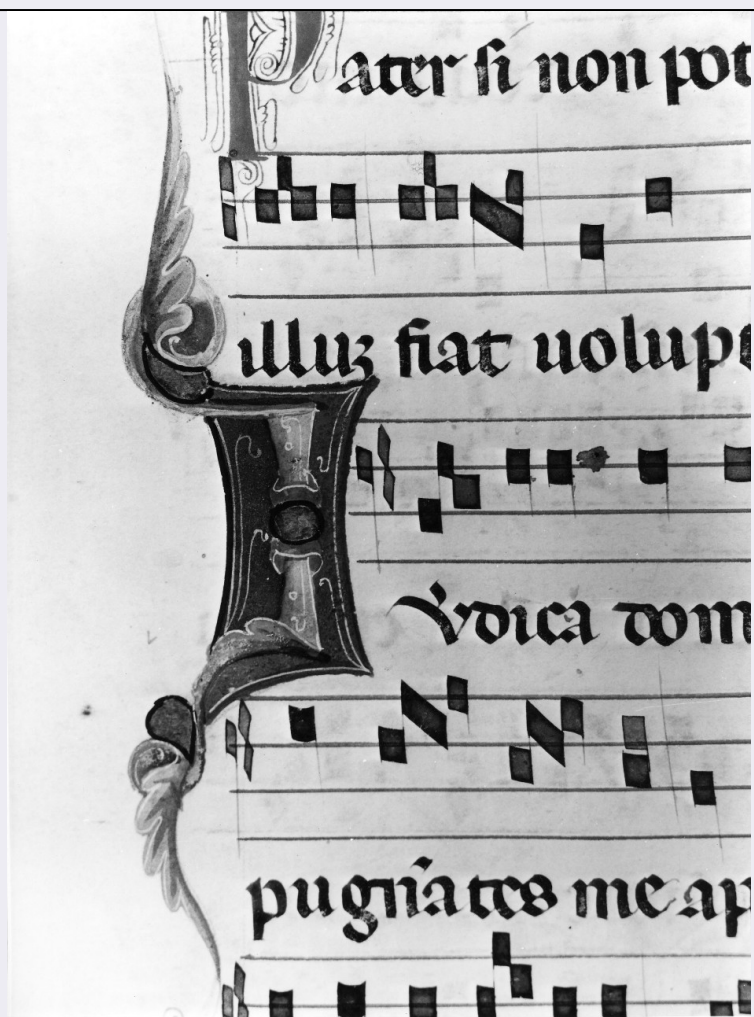 Pater si non pot
illuz fiat uolupt
Iudica dom
pugnātes me ap